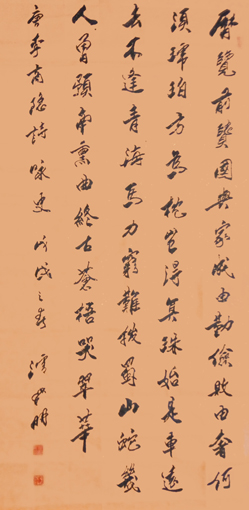 歷覽前賢國與家成由勤儉敗由奢何
須琥珀方為枕豈得真珠始是車遠
去不逢青海馬力窮難拔蜀山蛇幾
人曾預南熏曲終古蒼梧哭翠華
唐李商隱詩詠史